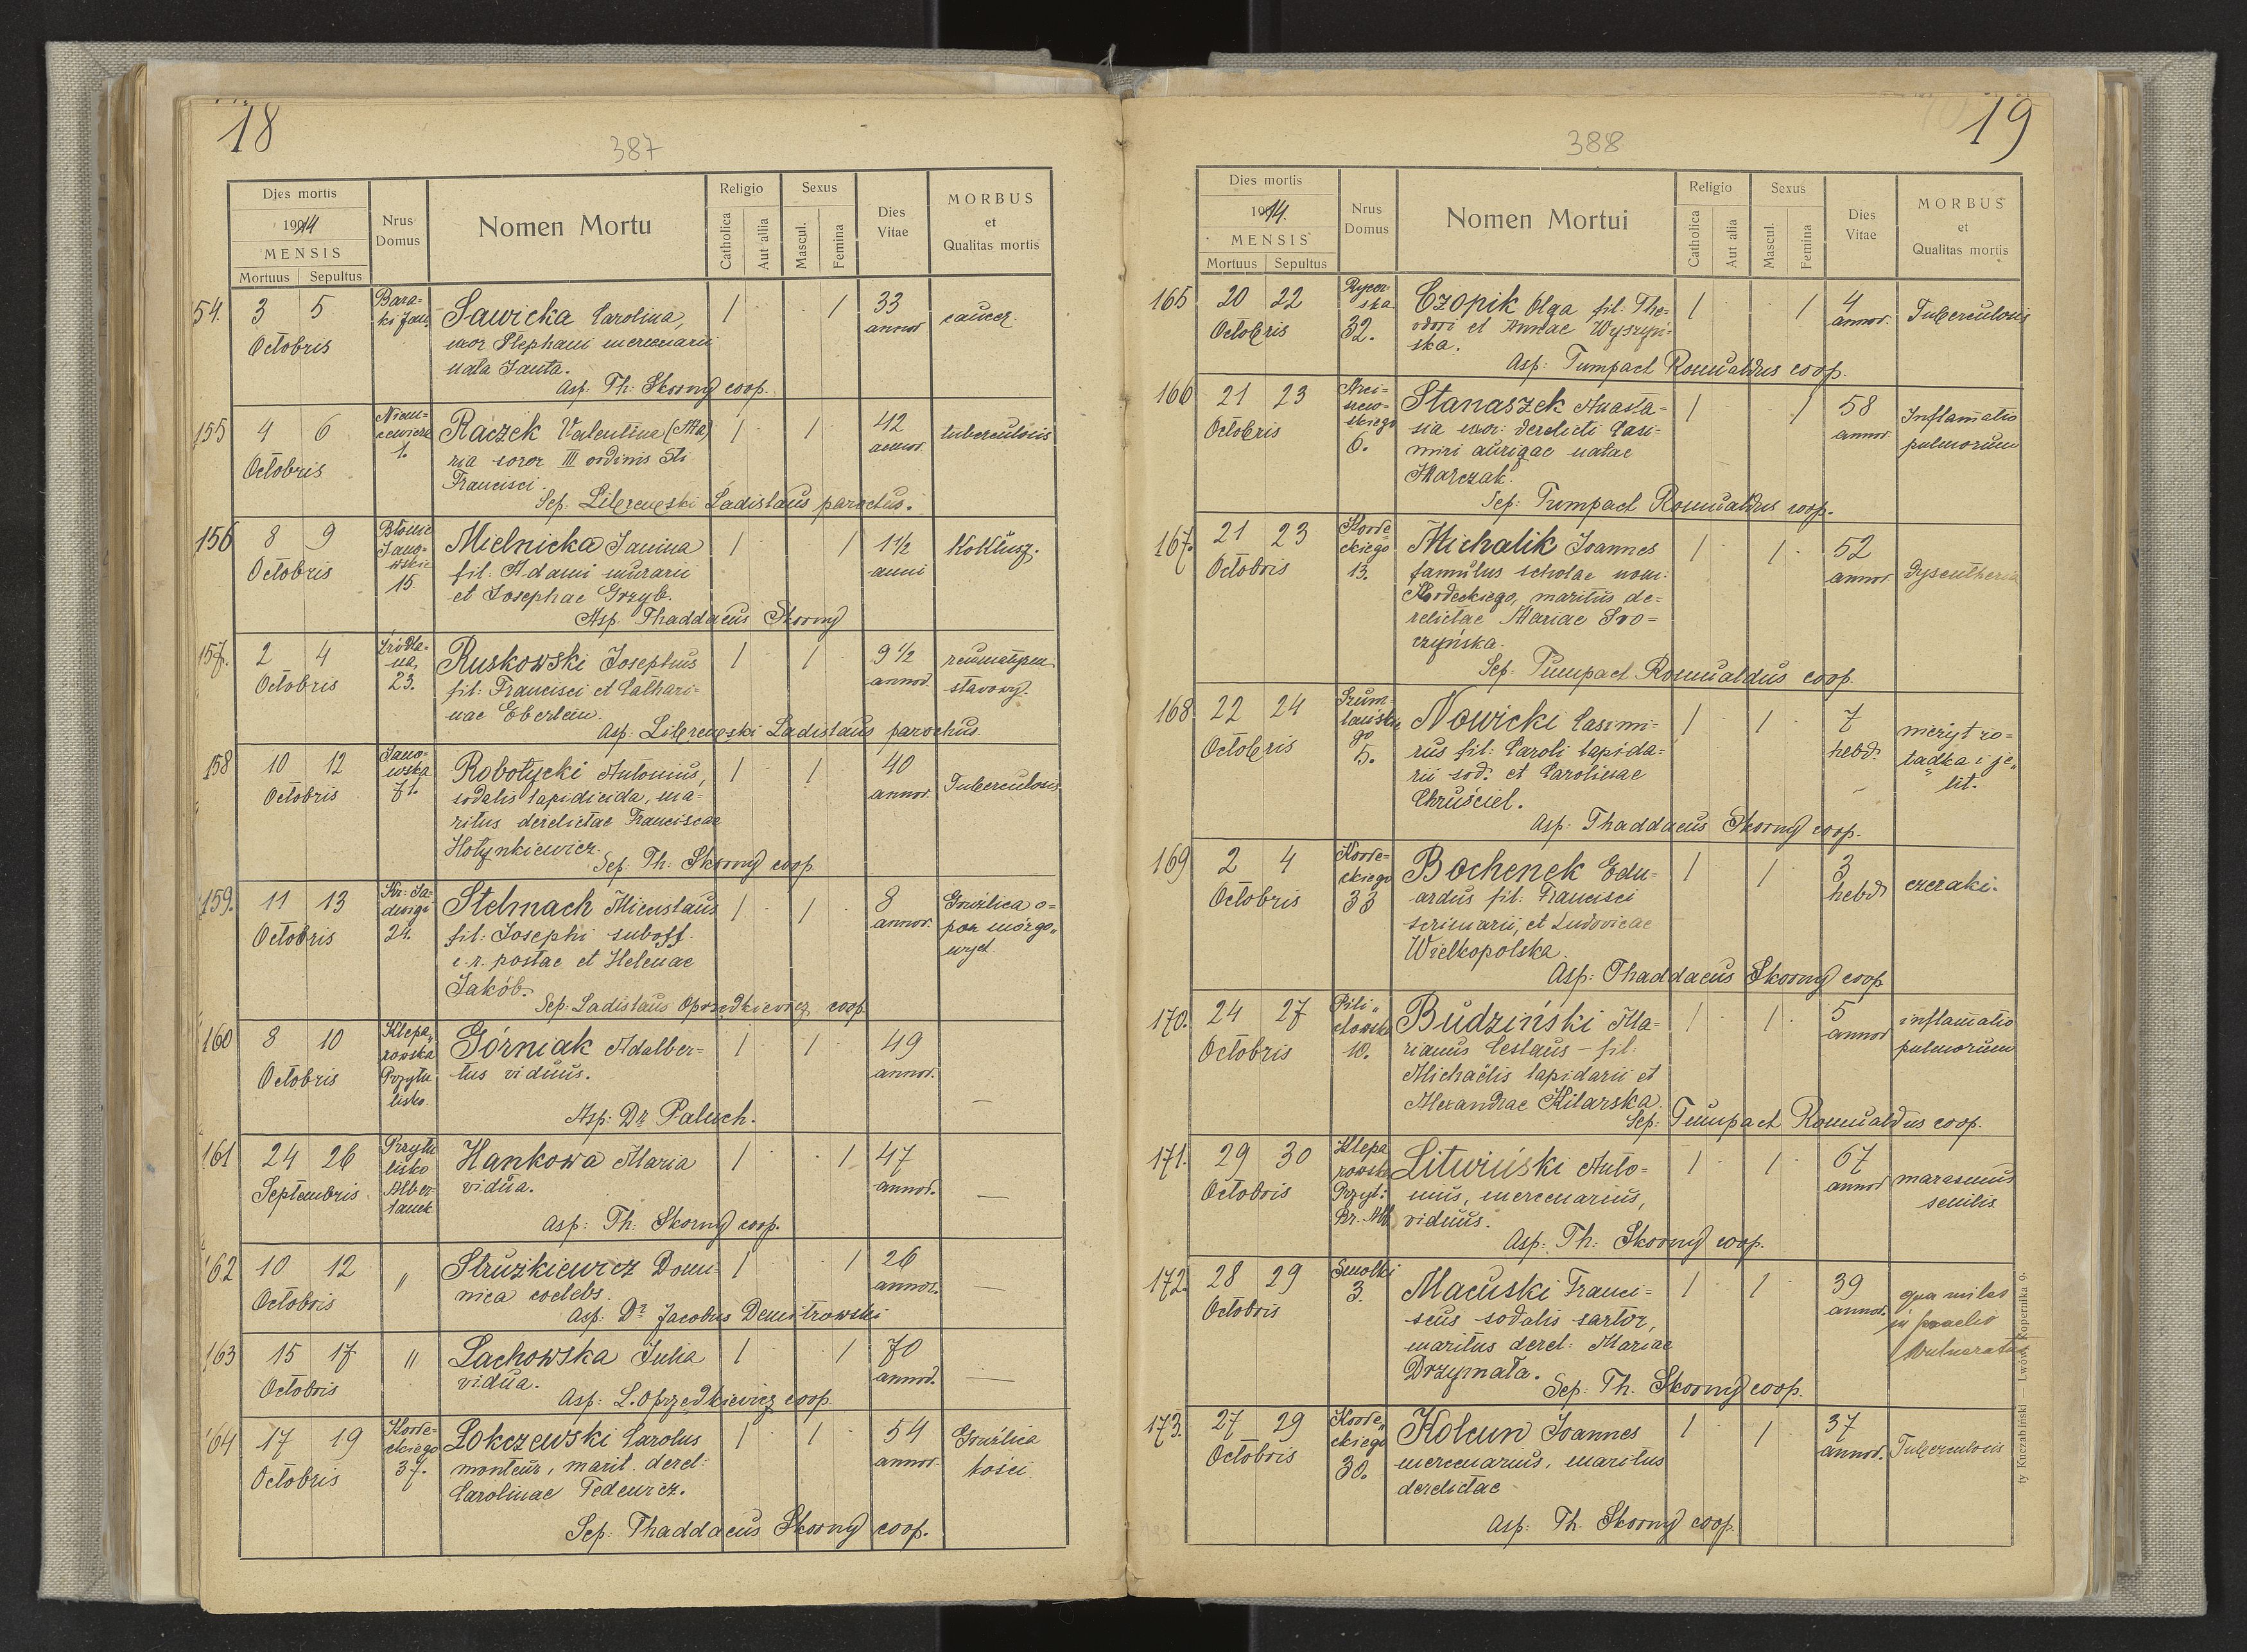 18
387
Dies mortis
1914
MENSIS
Mortuus Sepultus
Nrus
Domus
Nomen Mortu
Religio
Catholica
Aut allia
Sexus
Mascul.
Femina
Dies
Vitae
MORBUS
et
Qualitas mortis
54. 3 5
Octobris
Bara=
ki Jan.
Sawicka Carolina,
uxor Stephani mercenarii
nata Janta.
Asp: Th: Skorny coop.
1 1 33
annor
cancer
155 4 6
Octobris
Niem=
cewicza
1.
Raczek Valentina (Ma)
ria soror III ordinis Sti
Francisci.
Sep: Librewski Ladislaus parochus.
1 1 42
annor
tuberculosis
156 8 9
Octobris
Błonie
Jano=
wskie
15.
Mielnicka Janina
fil: Adami murarii
et Josephae Grzyb.
Asp. Thaddaeus Skorny
1 1 1 1/2
anni
Koklusz.
157. 2 4
Octobris
Źródla=
na,
23.
Ruskowski Josephus
fil: Francisci et Cathari=
nae Eberlein.
Asp: Librewski Ladislaus parochus.
1 1 9 1/2
annor.
reumatyzm
stawowy.
158 10 12
Octobris
Jano=
wska
71.
Robotycki Antonius,
sodalis lapidicida, ma=
ritus derelictae Franciscae
Hołynkiewicz.
Sep: Th: Skorny coop.
1 1 40
annor.
Tuberculosis
159. 11 13
Octobris
Kr: Ja=
dwigi
24.
Stelmach Miecislaus
fil: Josephi suboff.
c. r. postae et Helenae
Jakób.
Sep: Ladislaus Oprzędkiewicz coop
1 1 8
annor.
Gruźlica o=
pon mózgo„
wych
160 8 10
Octobris
Klepa„
rowska
Przytu
lisko.
Górniak Adalber=
tus viduus.
Asp: Dr Paluch.
1 1 49
annor.
—
161 24 26
Septembris
Przytu
lisko
Alber
tanek
Hankowa Maria
vidua.
Asp: Th: Skorny coop.
1 1 47
annor.
—
162 10 12
Octobris
"
Strużkiewicz Domi=
nica coelebs.
Asp: Dr Jacobus Demitrowski
1 1 26
annor.
—
163 15 17
Octobris
"
Lachowska Julia
vidua.
Asp: L. Oprzędkiewicz coop.
1 1 70
annor.
—
64 17 19
Octobris
Korde=
ckiego
37.
Lokczewski Carolus
monteur, marit. derel:
Carolinae Fedewicz.
Sep: Thaddaeus Skorny coop.
1 1 54
annor.
Gruźlica
kości
19
388
Dies mortis
1914.
MENSIS
Mortuus Sepultus
Nrus
Domus
Nomen Mortui
Religio
Catholica
Aut alia
Sexus
Mascul.
Femina
Dies
Vitae
MORBUS
et
Qualitas mortis
165 20 22
Octobris
Rycer=
ska
32.
Czopik Olga fil. The=
odori et Annae Wyszyń=
ska.
Asp: Tumpact Romualdus coop.
1 1 4
annor.
Tuberculosis
166 21 23
Octobris
Arci=
szew=
skiego
6.
Stanaszek Anasta=
sia uxor: derelicti Casi=
miri aurigae natae
Marczak.
Sep: Tumpact Romualdus coop.
1 1 58
annor.
Inflamatio
pulmorum
167. 21 23
Octobris
Korde=
ckiego
13.
Michalik Joannes
famulus scholae nom:
Kordeckiego, maritus de=
relictae Mariae Sro=
czyńska.
Sep: Tumpact Romualdus coop.
1 1 52
annor.
Dysentheria
168 22 24
Octobris
Szum=
lańskie
go
5.
Nowicki Casimi=
rus fil: Caroli lapida=
rii sod. et Carolinae
Chruściel.
Asp: Thaddaeus Skorny coop.
1 1 7
hebd.
nieżyt żo=
łądka i je„
lit.
169 2 4
Octobris
Korde=
ckiego
33
Bochenek Edu=
ardus fil: Francisci
scriniarii, et Ludovicae
Wielkopolska.
Asp: Thaddaeus Skorny coop
1 1 3
hebd
czeraki.
170. 24 27
Octobris
Pili„
chowska
10.
Budziński Ma=
rianus Ceslaus – fil:
Michaëlis lapidarii et
Alexandrae Kilarska.
Sep: Tumpact Romualdus coop.
1 1 5
annor
inflamatio
pulmorum
171. 29 30
Octobris
Klepa
rowska
Przyt:
Br. Alb.
Litwiński Anto=
nius, mercenarius,
viduus.
Asp: Th: Skorny coop.
1 1 67
annor
marasmus
senilis
172. 28 29
Octobris
Smolki
3.
Maciuski Franci=
scus sodalis sartor,
maritus derel: Mariae
Drzymała.
Sep: Th. Skorny coop.
1 1 39
annor.
qua miles
in praelio
vulneratus
173. 27 29
Octobris
Korde„
ckiego
30.
Kolcun Joannes
mercenarius, maritus
derelictae
Asp: Th. Skorny coop.
1 1 37
annor.
Tuberculosis
ty Kuczabiński — Lwów, Kopernika 9.